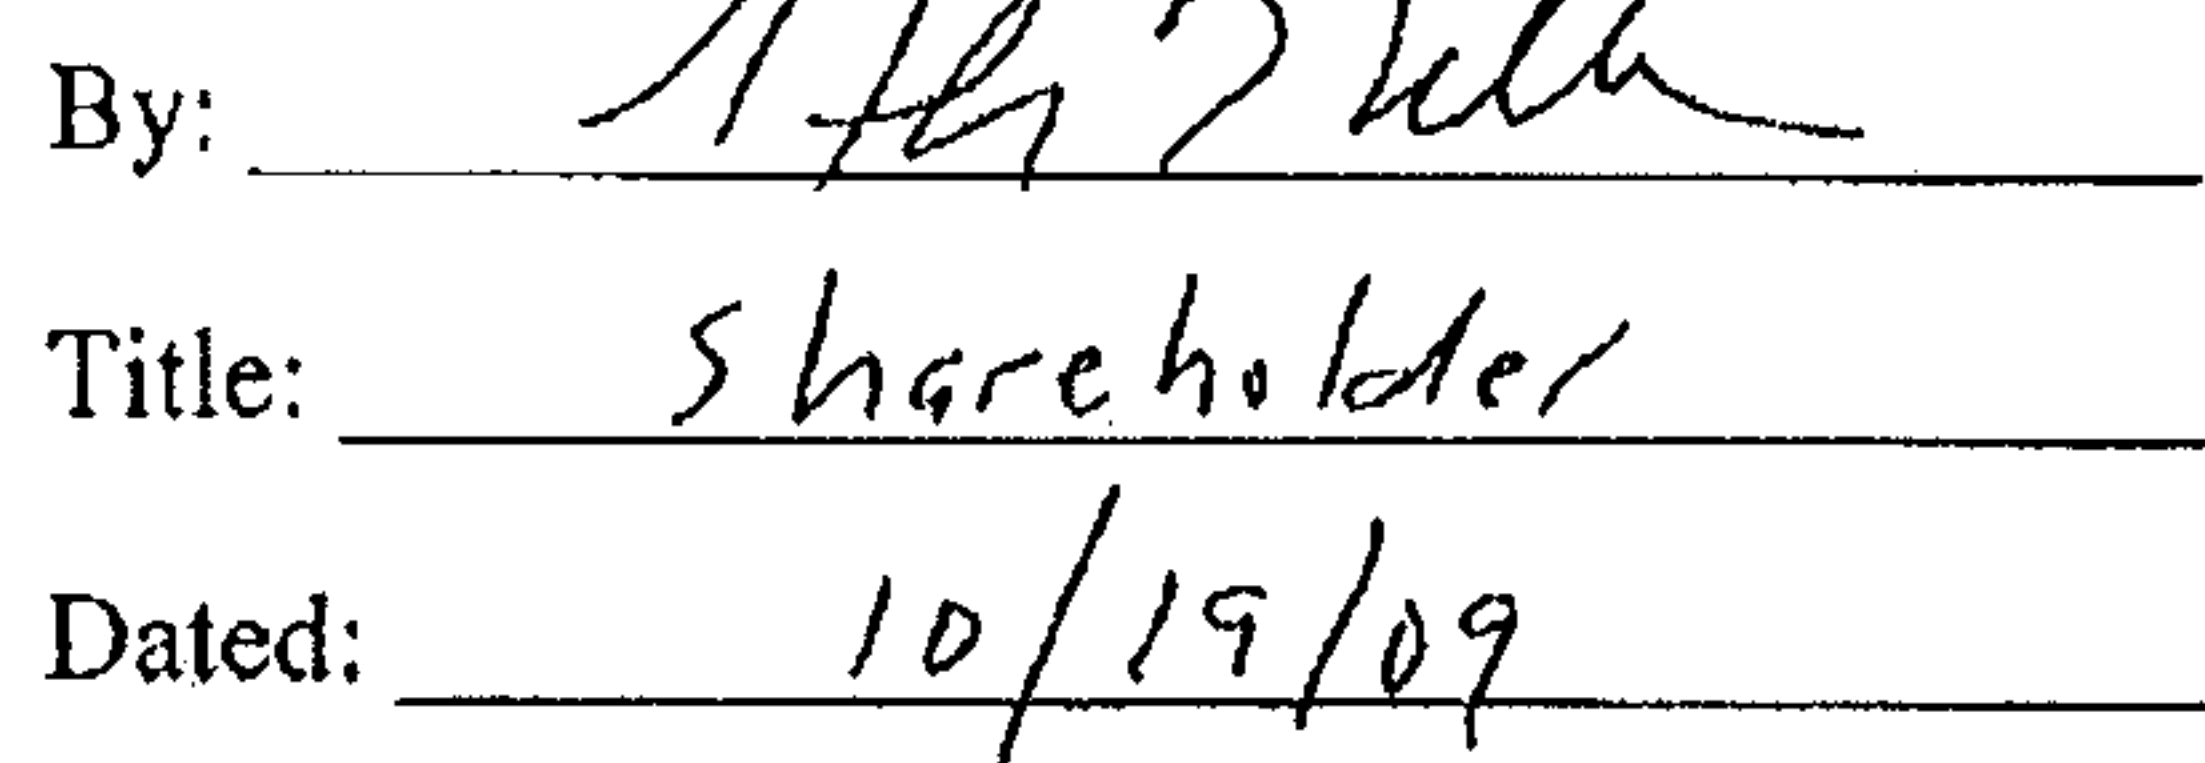 By:
Title: Shareholder
Dated: 10/19/09